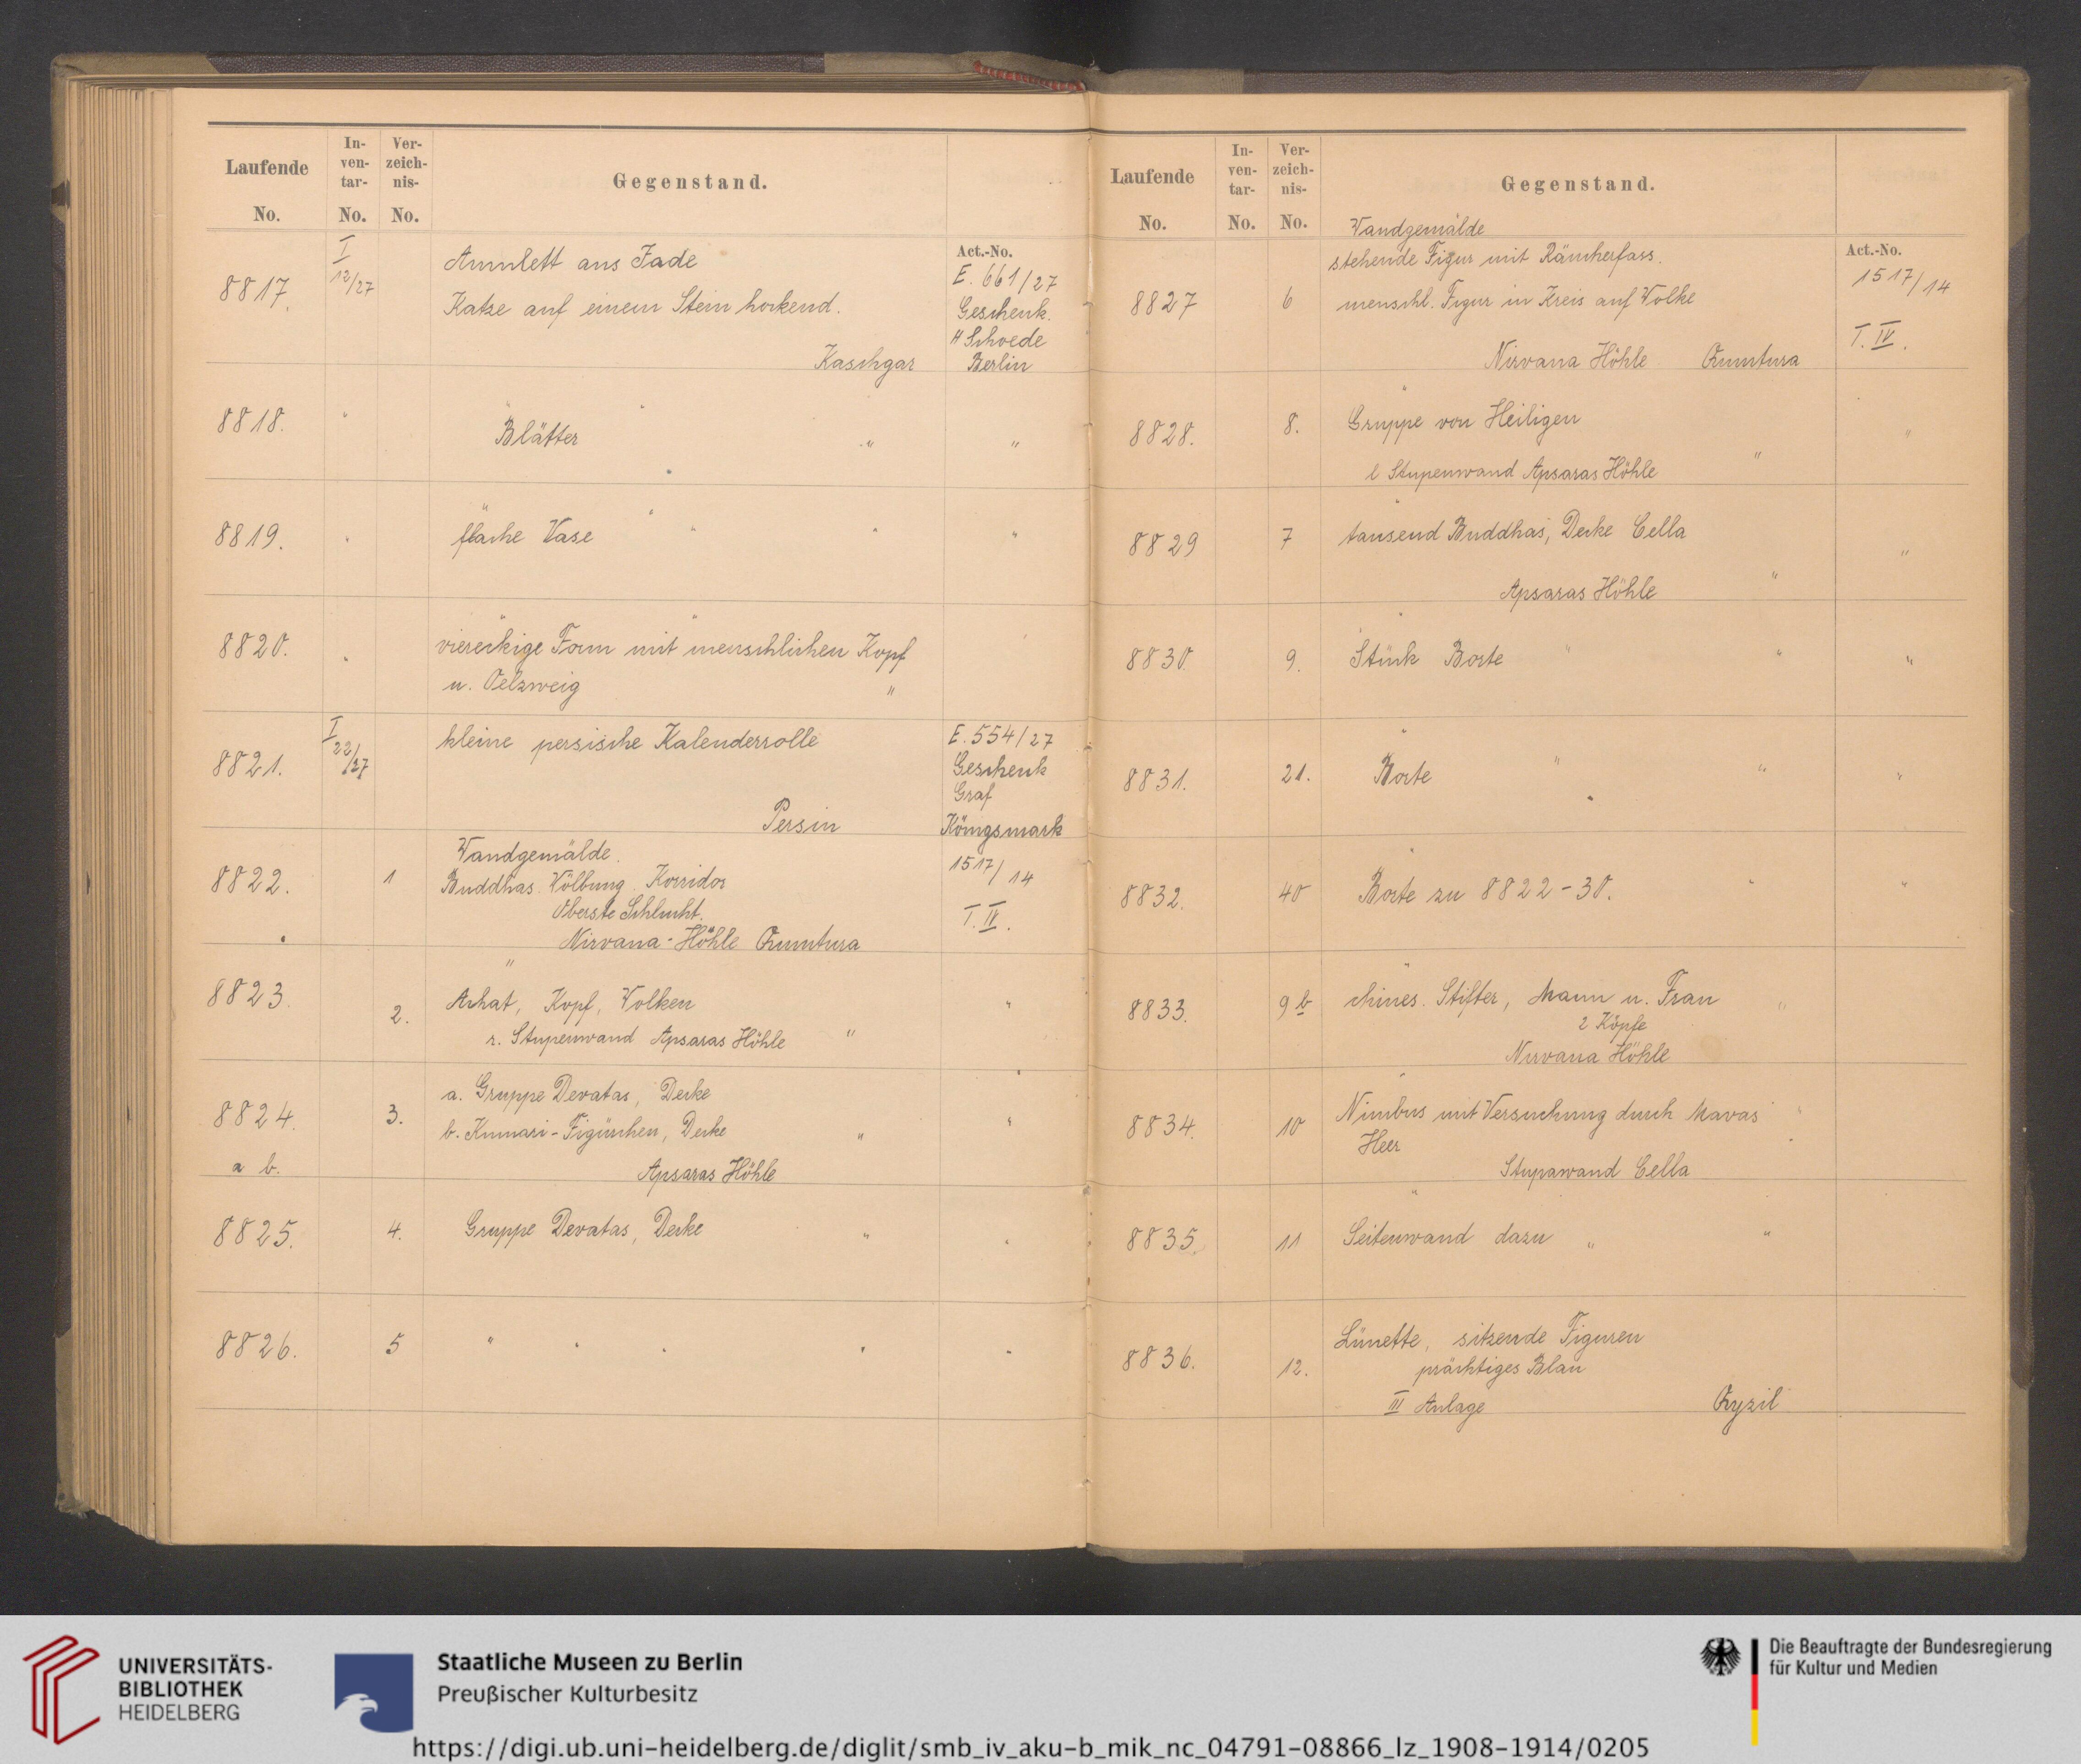 Laufende No.
In-ven-tar- No.
Ver-zeich-nis- No.
Gegenstand.
Act.-No.
8817. I 12/27 Amulett aus Jade E. 661/27
Katze auf einem Stein hockend. Geschenk.
H Schoede
Kaschgar Berlin
8818. " " Blätter " " "
8819. " " flache Vase " " " "
8820. " viereckige Form mit menschlichen Kopf "
u. Oelzweig "
8821. I 22/27 kleine persische Kalenderrolle E. 554/27
Geschenk
Graf
Persien Königsmark
8822. 1 Wandgemälde. 1517/14
Buddhas. Wölbung Korridor
Oberste Schlucht. T. IV.
Nirvana-Höhle Qumtura
"
8823. 2. Arhat, Kopf, Wolken "
r. Stupenwand Apsaras Höhle "
8824. 3. a. Gruppe Devatas, Decke
b. Kinnari-Figürchen, Decke " "
a b. Apsaras Höhle
8825. 4. Gruppe Devatas, Decke " "
8826. 5 " " " " "
Laufende No.
In-ven-tar- No.
Ver-zeich-nis- No.
Gegenstand.
Act.-No.
Wandgemälde
stehende Figur mit Räucherfass. 1517/14
8827 6 menschl. Figur in Kreis auf Wolke
T. IV.
Nirvana Höhle Qumtura
"
8828. 8. Gruppe von Heiligen "
l Stupenwand Apsaras Höhle "
"
8829 7 tausend Buddhas, Decke Cella "
Apsaras Höhle "
"
8830. 9. Stück Borte " " "
"
8831. 21. Borte " " "
"
8832. 40 Borte zu 8822-30. " "
"
8833. 9 b chines. Stifter, Mann u. Frau "
2 Köpfe
Nirvana Höhle
"
8834. 10 Nimbus mit Versuchung durch Maras "
Heer
Stupawand Cella
"
8835. 11 Seitenwand dazu " "
8836. 12. Lünette, sitzende Figuren
prächtiges Blau
III Anlage Qyzil
UNIVERSITÄTS-
BIBLIOTHEK
HEIDELBERG
Staatliche Museen zu Berlin
Preußischer Kulturbesitz
Die Beauftragte der Bundesregierung
für Kultur und Medien
https://digi.ub.uni-heidelberg.de/diglit/smb_iv_aku-b_mik_nc_04791-08866_lz_1908-1914/0205